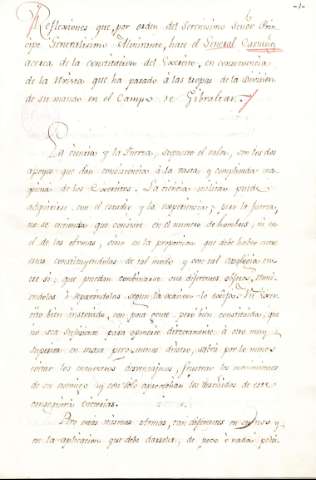 Reflexiones que, por orden del Serenisimo Señor Prin-
cipe Generalisimo Almirante, hace el General
acerca de la constitucion del Exercito, en consecuencia
de la Revista que ha pasado á las tropas de la Division
de su mando en el Campo de Gibraltar.
La ciencia y la fuerza, supuesto el valor, son los dos
apoyos que dan consistencia á la vasta y complicada ma-
quina de los Exercitos. La ciencia militar puede
adquirirse con el estudio y la experiencia; pero la fuerza,
no se entienda que consiste en el numero de hombres, ni en
el de las armas, sino en la proporcion que debe haber entre
constituyendolas de tal modo y con tal
si, que puedan combinarse sus diferentes
ó separandolas segun la ocasion lo exija. Un Exer-
cito bien instruido, con poca gente, pero bien constituido, que
no sea suficiente para oponerse directamente á otro muy
superior en masa pero menos diestro, sabrá por lo menos
evitar los encuentros desventajosos, frustrar los movimientos
de su enemigo, y con solo aprovechar los descuidos de este
conseguirá victorias.
Por mas mismas armas, con diferentes
en la aplicacion que debe darseles, de poco ó nada podrá